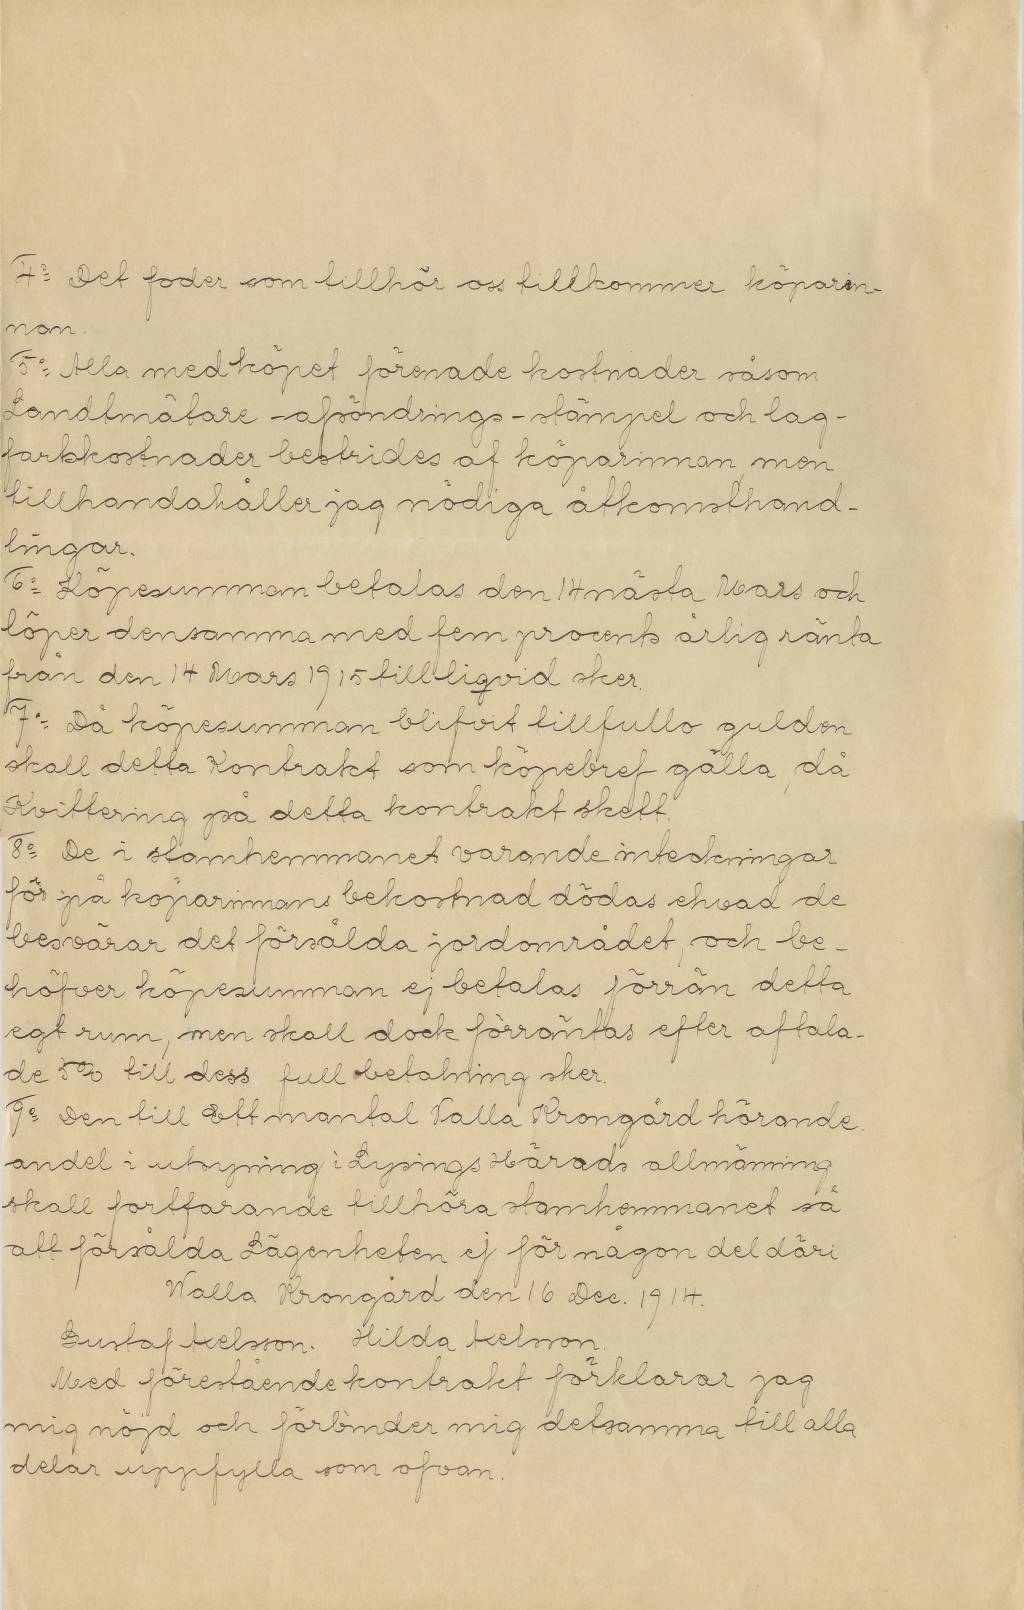 4º Det foder som tillhör oss tillkommer köparin-
nan.
5º Alla med köpet förenade kostnader såsom
Landtmätare - afsöndrings - stämpel och lag-
fartskostnader bestrides af köparinnan, men
tillhandahåller jag nödiga åtkomsthand-
lingar.
6º Köpesumman betalas den 14 nästa Mars och
löper densamma med fem procents årlig ränta
från den 14 Mars 1915 till liqvid sker.
7º Då köpesumman blifvit tillfullo gulden
skall detta Kontrakt som köpebref gälla, då
Kvittering på detta kontrakt skett.
8º De i stamhemmanet varande inteckningar
för på köparinnans bekostnad dödas ehvad de
besvärar det försålda jordområdet, och be-
höfver köpesumman ej betalas förrän detta
egt rum, men skall dock förräntas efter aftala-
de 5% till dess full betalning sker.
9º Den till Ett mantal Valla Krongård hörande
andel i utsyning i Lysings Härads allmänning
skall fortfarande tillhöra stamhemmanet så
att försålda Lägenheten ej för någon del däri
Walla Krongård den 16 Dec. 1914.
Gustaf Axelsson. Hilda Axelsson.
Med förestående kontrakt förklarar jag
mig nöjd och förbinder mig detsamma till alla
delar uppfylla som ofvan.